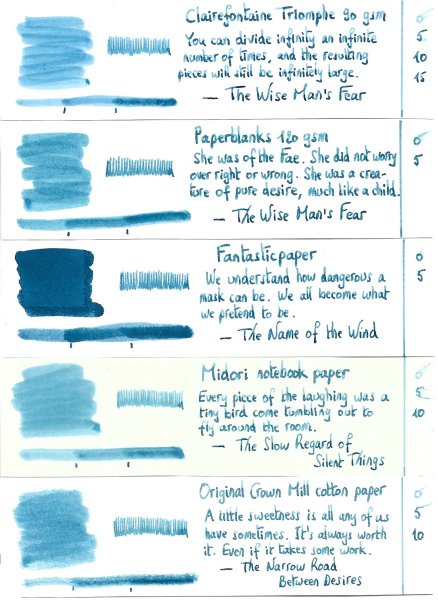 Clairefontaine Triomphe 90 gsm
You can divide infinity an infinite
number of times, and the resulting
pieces will still be infinitely large.
— The Wise Man's Fear
0
5
10
15
Paperblanks 120 gsm
She was of the Fae. She did not worry
over right or wrong. She was a crea-
ture of pure desire, much like a child.
— The Wise Man's Fear
0
5
Fantasticpaper
We understand how dangerous a
mask can be. We all become what
we pretend to be.
— The Name of the Wind
0
5
Midori notebook paper
Every piece of the laughing was a
tiny bird come tumbling out to
fly around the room.
— The Slow Regard of
Silent Things
0
5
10
Original Crown Mill cotton paper
A little sweetness is all any of us
have sometimes. It's always worth
it. Even if it takes some work.
— The Narrow Road
Between Desires
0
5
10